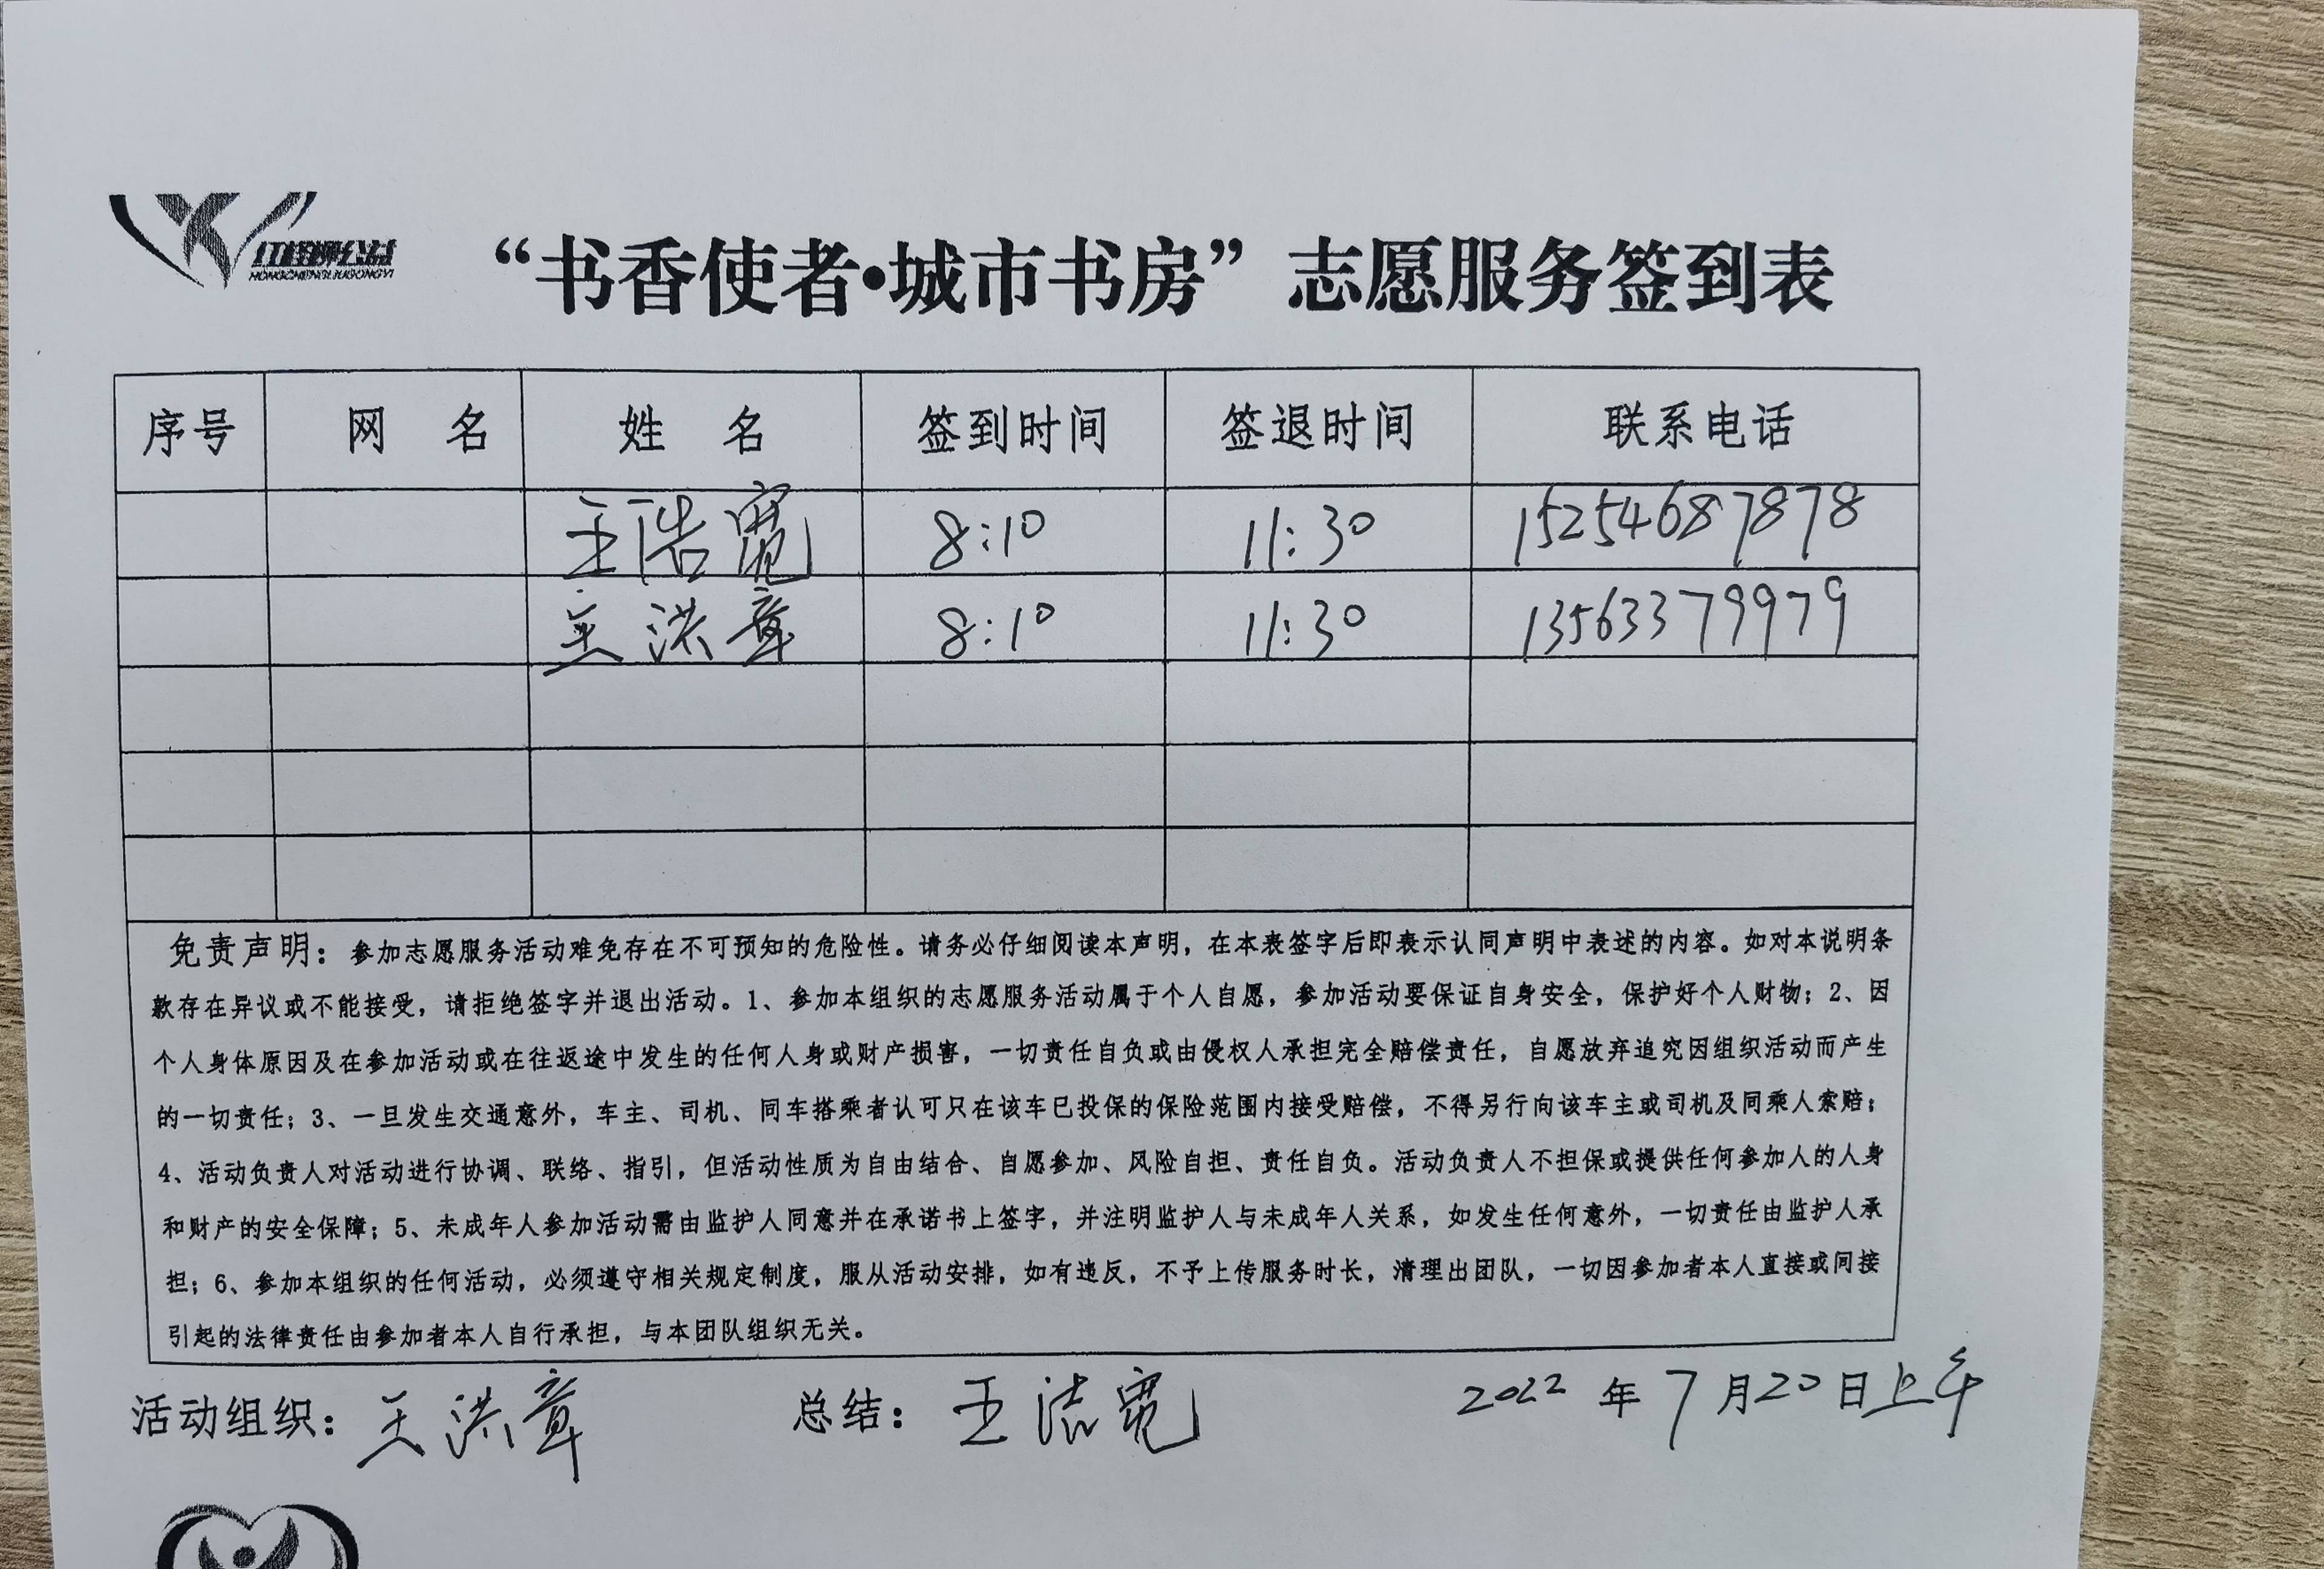 HONGCHENGLIJUGONGYI
“书香使者•城市书房”志愿服务签到表
序号 网 名 姓 名 签到时间 签退时间 联系电话
王浩宽 8:10 11:30 15254687878
王洪章 8:10 11:30 13563379979
免责声明：参加志愿服务活动难免存在不可预知的危险性。请务必仔细阅读本声明，在本表签字后即表示认同声明中表述的内容。如对本说明条
款存在异议或不能接受，请拒绝签字并退出活动。1、参加本组织的志愿服务活动属于个人自愿，参加活动要保证自身安全，保护好个人财物；2、因
个人身体原因及在参加活动或在往返途中发生的任何人身或财产损害，一切责任自负或由侵权人承担完全赔偿责任，自愿放弃追究因组织活动而产生
的一切责任；3、一旦发生交通意外，车主、司机、同车搭乘者认可只在该车已投保的保险范围内接受赔偿，不得另行向该车主或司机及同乘人索赔；
4、活动负责人对活动进行协调、联络、指引，但活动性质为自由结合、自愿参加、风险自担、责任自负。活动负责人不担保或提供任何参加人的人身
和财产的安全保障；5、未成年人参加活动需由监护人同意并在承诺书上签字，并注明监护人与未成年人关系，如发生任何意外，一切责任由监护人承
担；6、参加本组织的任何活动，必须遵守相关规定制度，服从活动安排，如有违反，不予上传服务时长，清理出团队，一切因参加者本人直接或间接
引起的法律责任由参加者本人自行承担，与本团队组织无关。
活动组织：王洪章 总结：王浩宽 2022年7月20日上午